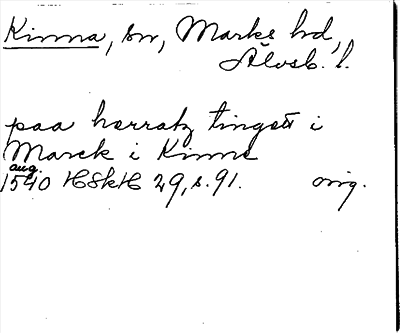 Kinna, sn, Marks hd,
Älvsb. l.
paa herratz tingeti i
Marck i Kinne
aug.
1540 HSkH 29, s. 91. orig.